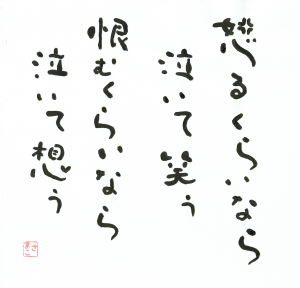 怒るくらいなら
泣いて笑う
恨むくらいなら
泣いて想う